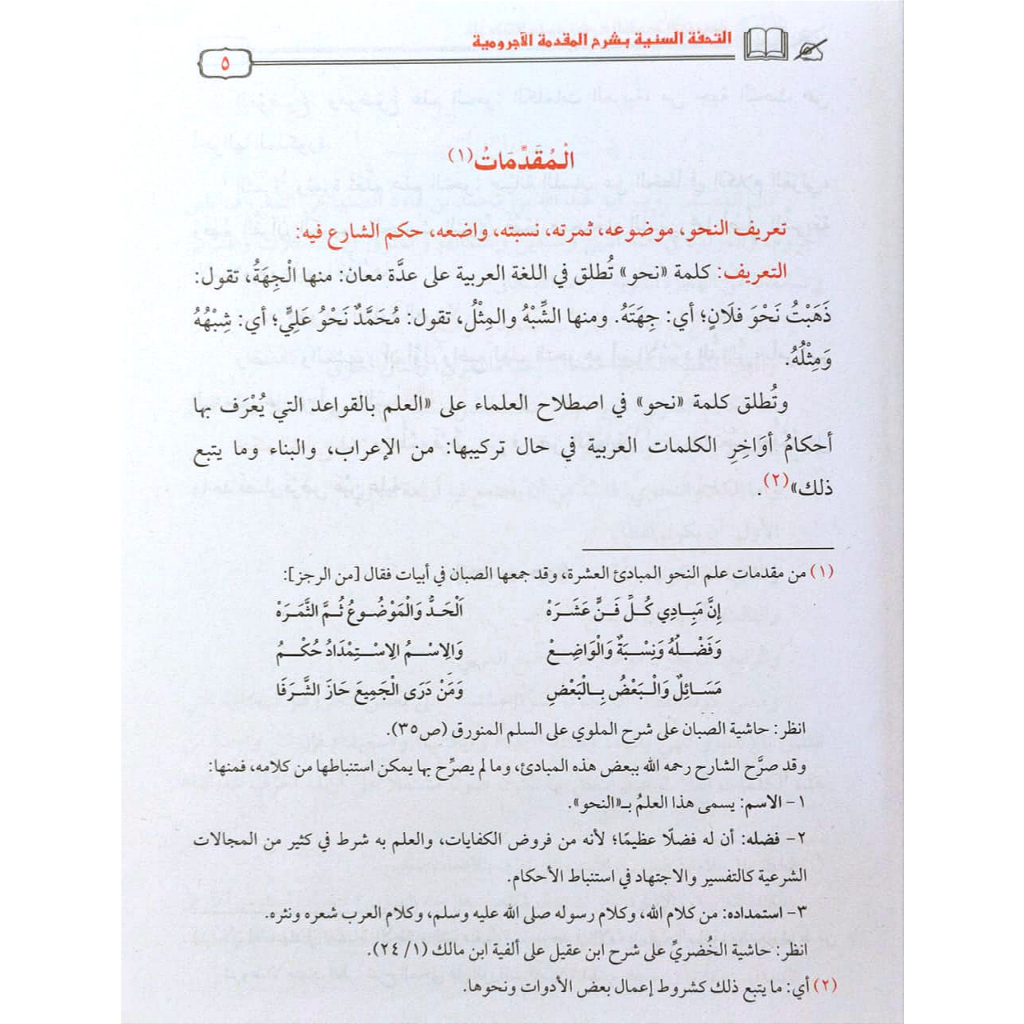 التحفة السنية بشرح المقدمة الآجرومية
٥
الْمُقَدِّمَاتُ(١)
تعريف النحو، موضوعه، ثمرته، نسبته، واضعه، حكم الشارع فيه:
التعريف: كلمة «نحو» تُطلق في اللغة العربية على عدَّة معان: منها الْجِهَةُ، تقول:
ذَهَبْتُ نَحْوَ فلَانٍ؛ أي: جِهَتَهُ. ومنها الشِّبْهُ والمِثْلُ، تقول: مُحَمَّدٌ نَحْوُ عَلِيٍّ؛ أي: شِبْهُهُ
وَمِثْلُهُ.
وتُطلق كلمة «نحو» في اصطلاح العلماء على «العلم بالقواعد التي يُعْرَف بها
أحكامُ أوَاخِرِ الكلمات العربية في حال تركيبها: من الإعراب، والبناء وما يتبع
ذلك»(٢).
(١) من مقدمات علم النحو المبادئ العشرة، وقد جمعها الصبان في أبيات فقال [من الرجز]:
إِنَّ مَبَادِي كُلِّ فَنٍّ عَشَرَهْ اَلْحَدُّ وَالْمَوْضُوعُ ثُمَّ الثَّمَرَهْ
وَفَضْلُهُ وَنِسْبَةٌ وَالْوَاضِعْ وَالِاسْمُ الِاسْتِمْدَادُ حُكْمُ
مَسَائِلٌ وَالْبَعْضُ بِالْبَعْضِ وَمَنْ دَرَى الْجَمِيعَ حَازَ الشَّرَفَا
انظر: حاشية الصبان على شرح الملوي على السلم المنورق (ص٣٥).
وقد صرَّح الشارح رحمه الله ببعض هذه المبادئ، وما لم يصرِّح بها يمكن استنباطها من كلامه، فمنها:
١- الاسم: يسمى هذا العلمُ بـ«النحو».
٢- فضله: أن له فضلًا عظيمًا؛ لأنه من فروض الكفايات، والعلم به شرط في كثير من المجالات
الشرعية كالتفسير والاجتهاد في استنباط الأحكام.
٣- استمداده: من كلام الله، وكلام رسوله صلى الله عليه وسلم، وكلام العرب شعره ونثره.
انظر: حاشية الخُضريِّ على شرح ابن عقيل على ألفية ابن مالك (١/ ٢٤).
(٢) أي: ما يتبع ذلك كشروط إعمال بعض الأدوات ونحوها.